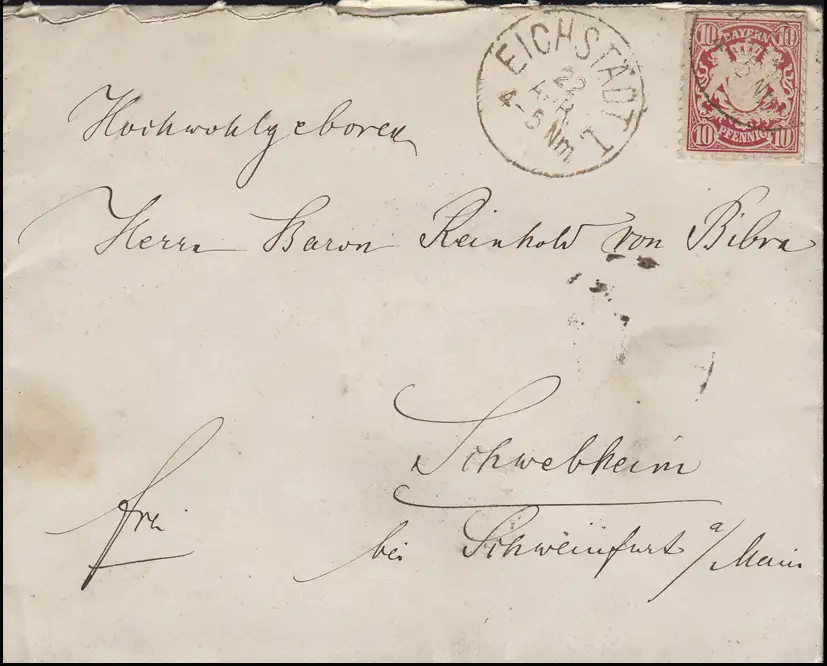 EICHSTÄDT I
22
APR
4-5 Nm.
10 BAYERN 10
10 PFENNIG 10
Hochwohlgeboren
Herrn Baron Reinhold von Bibra
Schwebheim
frei
bei Schweinfurt a/Main